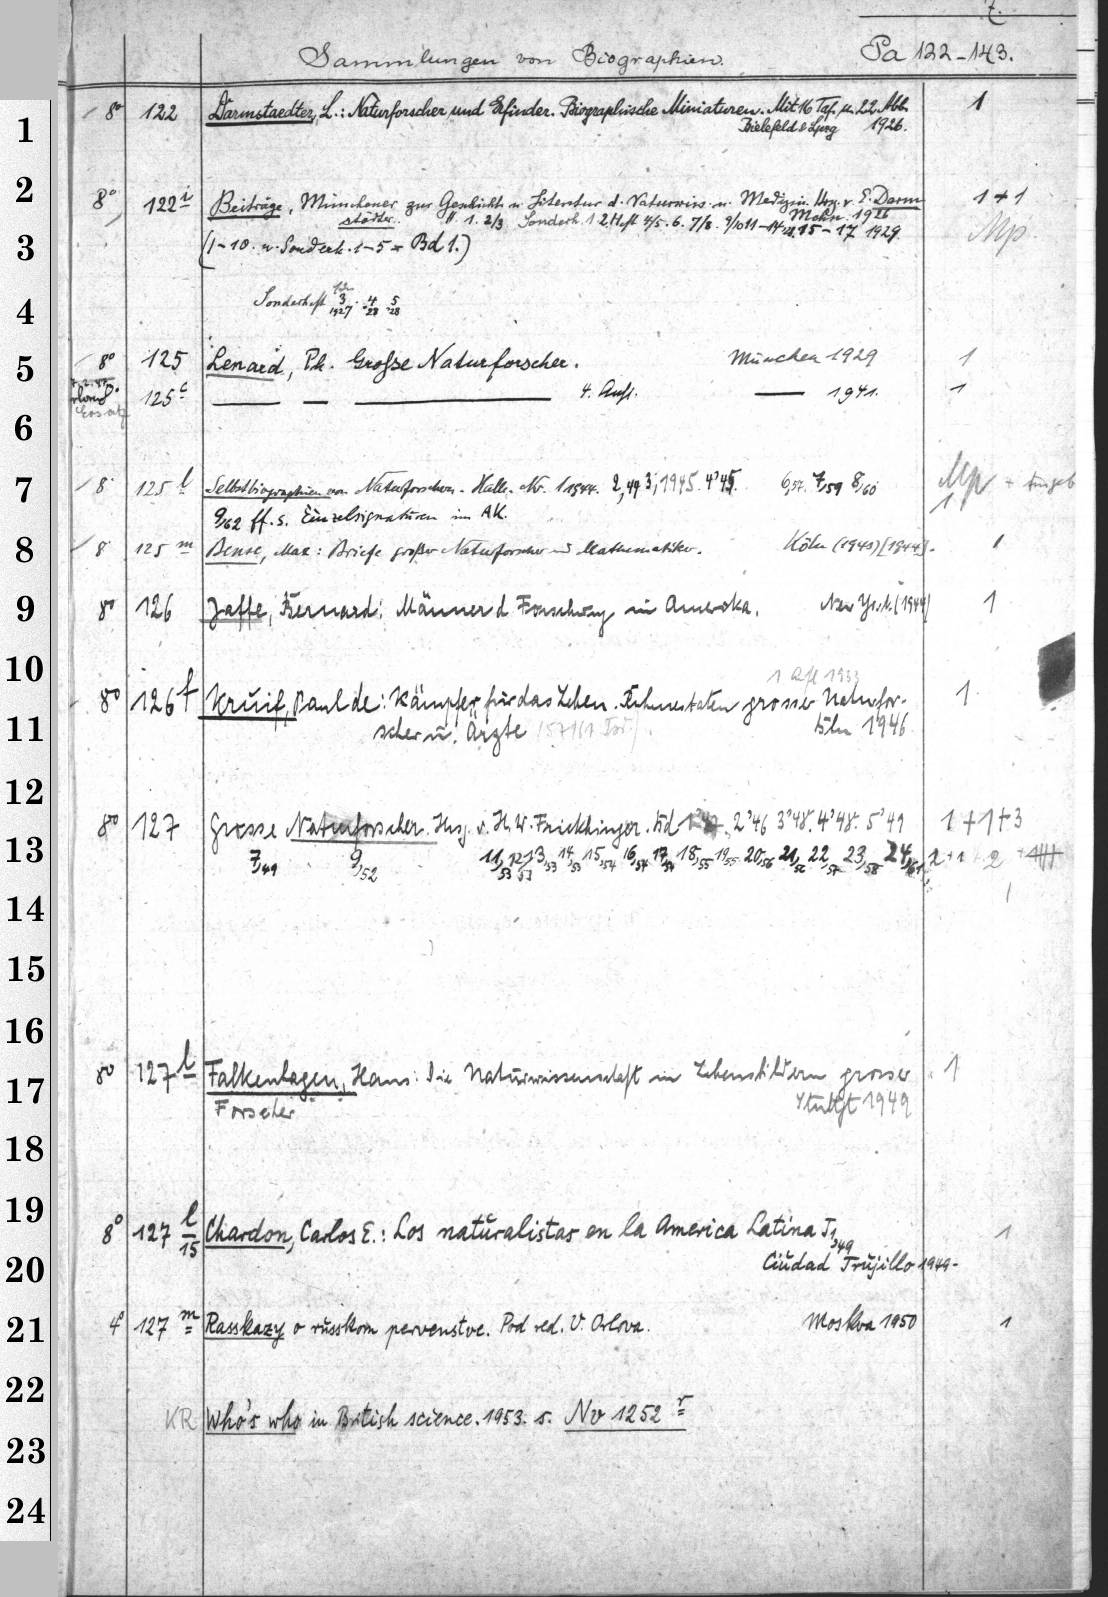 7.
Sammlungen von Biographien. Pa 122-143.
1 8° 122 Darmstaedter, L.: Naturforscher und Erfinder. Biographische Miniaturen. Mit 16 Taf. u. 22 Abb. 1
Bielefeld & Lpzg 1926.
2 8° 122 i Beiträge, Münchener zur Geschichte u. Literatur d. Naturwiss. u. Medizin. Hrsg. v. E. Darm 1+1
städter. H. 1. 2/3 Sonderh. 1 2. Heft 4/5. 6. 7/8. 9/10 11-14 15-17 1929. Mchn. 1926
3 (1-10. u. Sonderh. 1-5 = Bd 1.) Mp
4 Sonderheft 3 1927 4 28 5 28
5 8° 125 Lenard, Ph. Große Naturforscher. München 1929 1
125 c — — — 4. Aufl. — 1941. 1
6
7 8° 125 l Selbstbiographien von Naturforschern. Halle. Nr. 1 1944. 2,49 3, 1945. 4'45. 6,57. 7/59 8/60 Mp
9/62 ff. s. Einzelsignaturen im AK. 1
8 8° 125 m Bense, Max: Briefe großer Naturforscher und Mathematiker. Köln (1943) [1944]. 1
9 8° 126 Jaffe, Bernard: Männer d Forschung in Amerika. New York (1944) 1
10 1 Afl 1933
8° 126 f Kruif, Paul de: Kämpfer für das Leben. Ruhmestaten grosser Naturfor- 1
11 scher u. Ärzte Köln 1946
12
8° 127 Grosse Naturforscher. Hrsg. v. H. W. Frickhinger. Bd 1'47, 2'46 3'48. 4'48. 5'49 1+1+3
13 7/49 9/52 11/53 12/53 13/53 14/53 15/54 16/54 17/54 18/55 19/55 20/56 21/56 22/57 23/58 24/61 2+1+2
14 1
15
16
17 8° 127 l Falkenhagen, Hans: Die Naturwissenschaft in Lebensbildern grosser 1
Forscher Stuttgt 1949
18
19 8° 127 l 15 Chardon, Carlos E.: Los naturalistas en la America Latina T. 1,'49 1
20 Ciudad Trujillo 1949-
21 4° 127 m Rasskazy o russkom pervenstve. Pod red. V. Orlova. Moskva 1950 1
22
KR Who's who in British science. 1953. s. Nv 1252 r
23
24